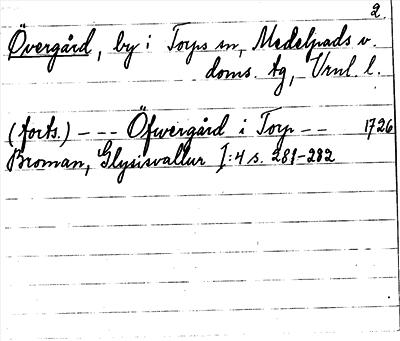 2.
Övergård, by i Torps sn, Medelpads v.
doms. tg, Vrnl. l.
(forts.) --- Öfwergård i Torp -- 1726
Broman, Glysisvallur I:4 s. 281-282